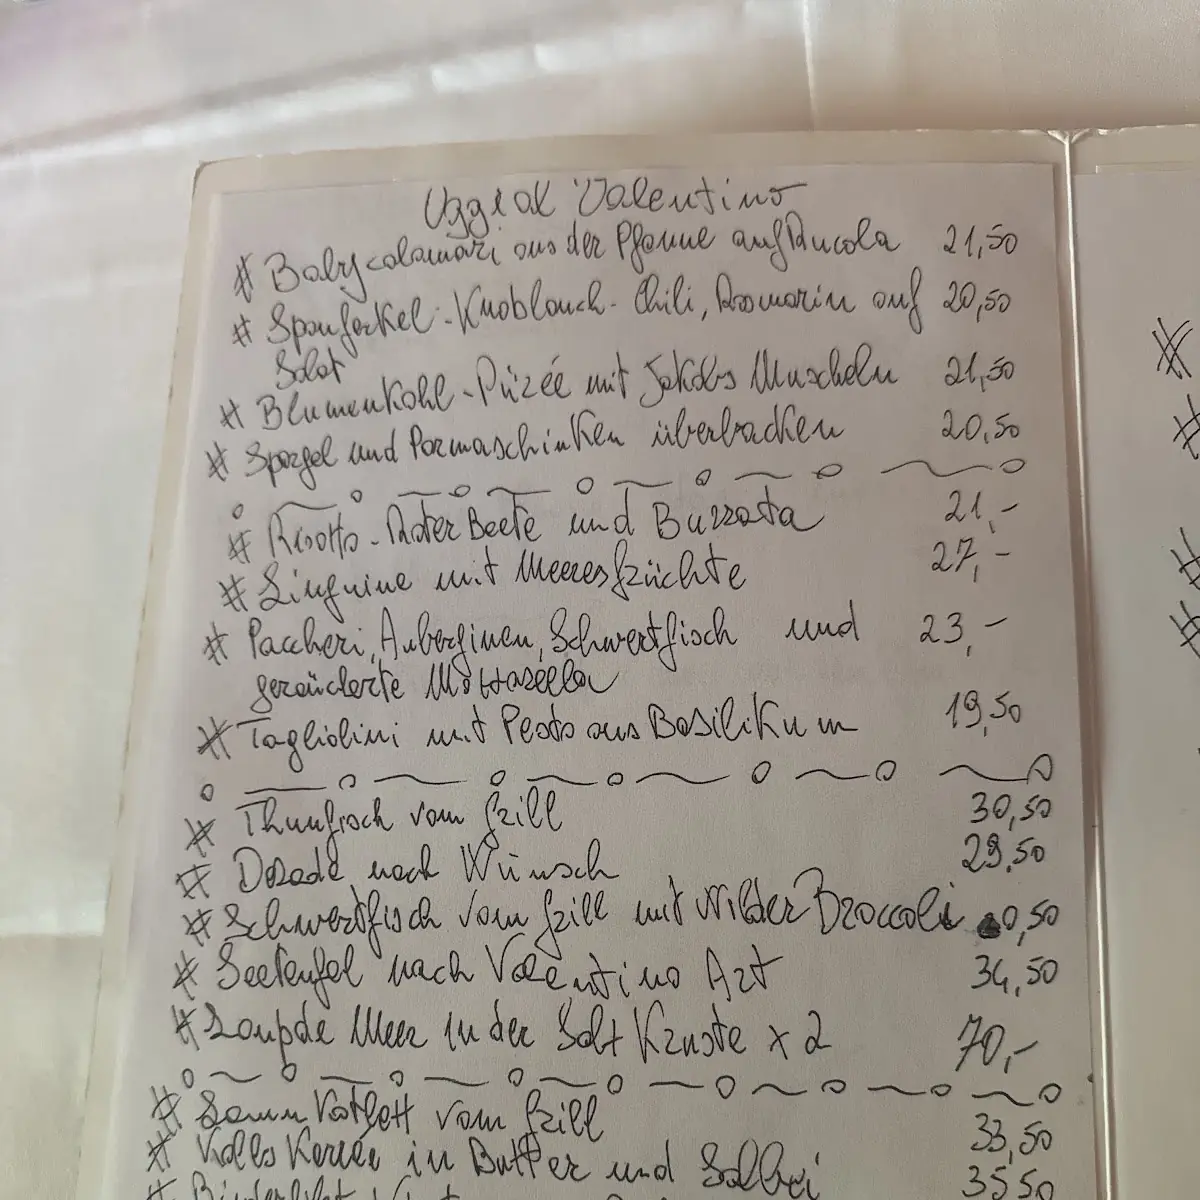 Valentino
# Babycalamari aus der Pfanne auf Rucola 21,50
# Spanferkel-Knoblauch-Chili, Rosmarin auf 20,50
Salat
# Blumenkohl-Pürée mit Jakobs Muscheln 21,50
# Spargel und Parmaschinken überbacken 20,50
# Risotto-Roter Beete und Burrata 21,-
# Linguine mit Meeresfrüchte 27,-
# Paccheri, Auberginen, Schwertfisch und 23,-
geräucherte Mozzarella
# Tagliolini mit Pesto aus Basilikum 19,50
# Thunfisch vom Grill 30,50
# Dorade nach Wunsch 29,50
# Schwertfisch vom Grill mit Wilder Broccoli 0,50
# Seeteufel nach Valentino Art 34,50
# Loup de Meer in der Salt Kruste x 2 70,-
# Lamm Kotlett vom Grill 33,50
# Kalbs in Butter und Salbei 35,50